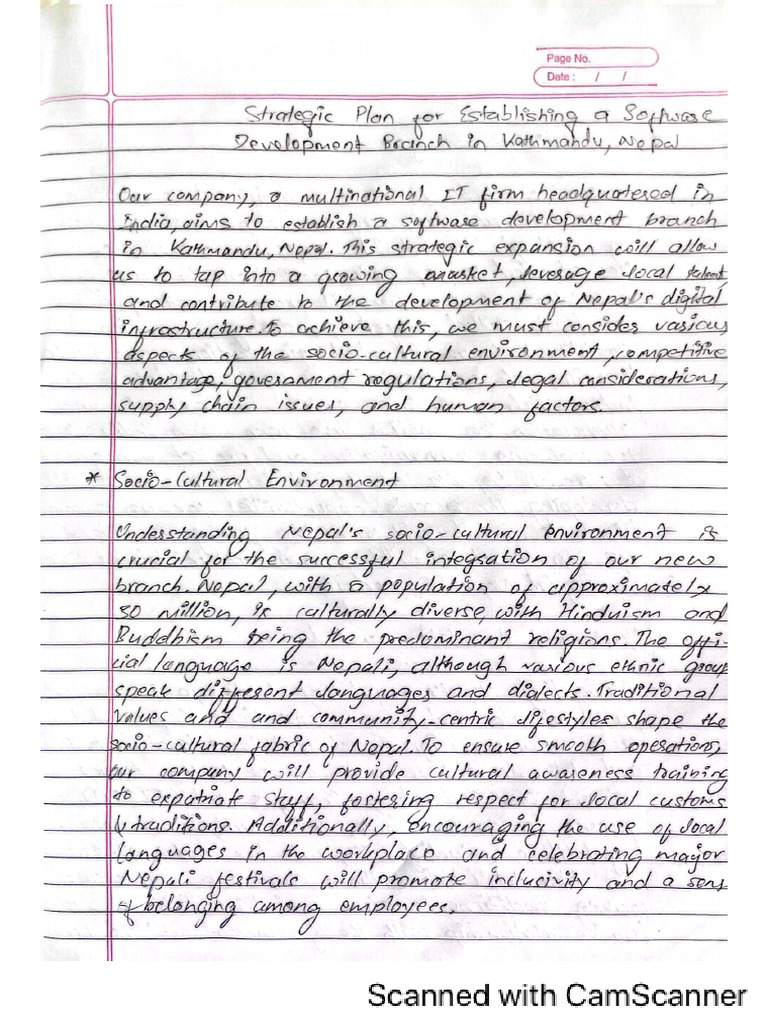 Page No.
Date : / /
Strategic Plan for Establishing a Software
Development Branch in Kathmandu, Nepal
Our company, a multinational IT firm headquatered in
India, aims to establish a software development branch
in Kathmandu, Nepal. This strategic expansion will allow
us to tap into a growing market, leverage local talent,
and contribute to the development of Nepal's digital
infrastructure. To achieve this, we must consider various
aspects of the socio-cultural environment, competitive
advantage, government regulations, legal considerations,
supply chain issues, and human factors.
* Socio-Cultural Environment
Understanding Nepal's socio-cultural environment is
crucial for the successful integration of our new
branch. Nepal, with a population of approximately
30 million, is culturally diverse, with Hinduism and
Buddhism being the predominant religions. The offi-
cial language is Nepali, although various ethnic group
speak different languages and dialects. Traditional
values and and community-centric lifestyles shape the
socio-cultural fabric of Nepal. To ensure smooth operations,
our company will provide cultural awareness training
to expatriate staff, fostering respect for local customs
& traditions. Additionally, encouraging the use of local
languages in the workplace and celebrating major
Nepali festivals will promote inclucivity and a sens
of belonging among employees.
Scanned with CamScanner